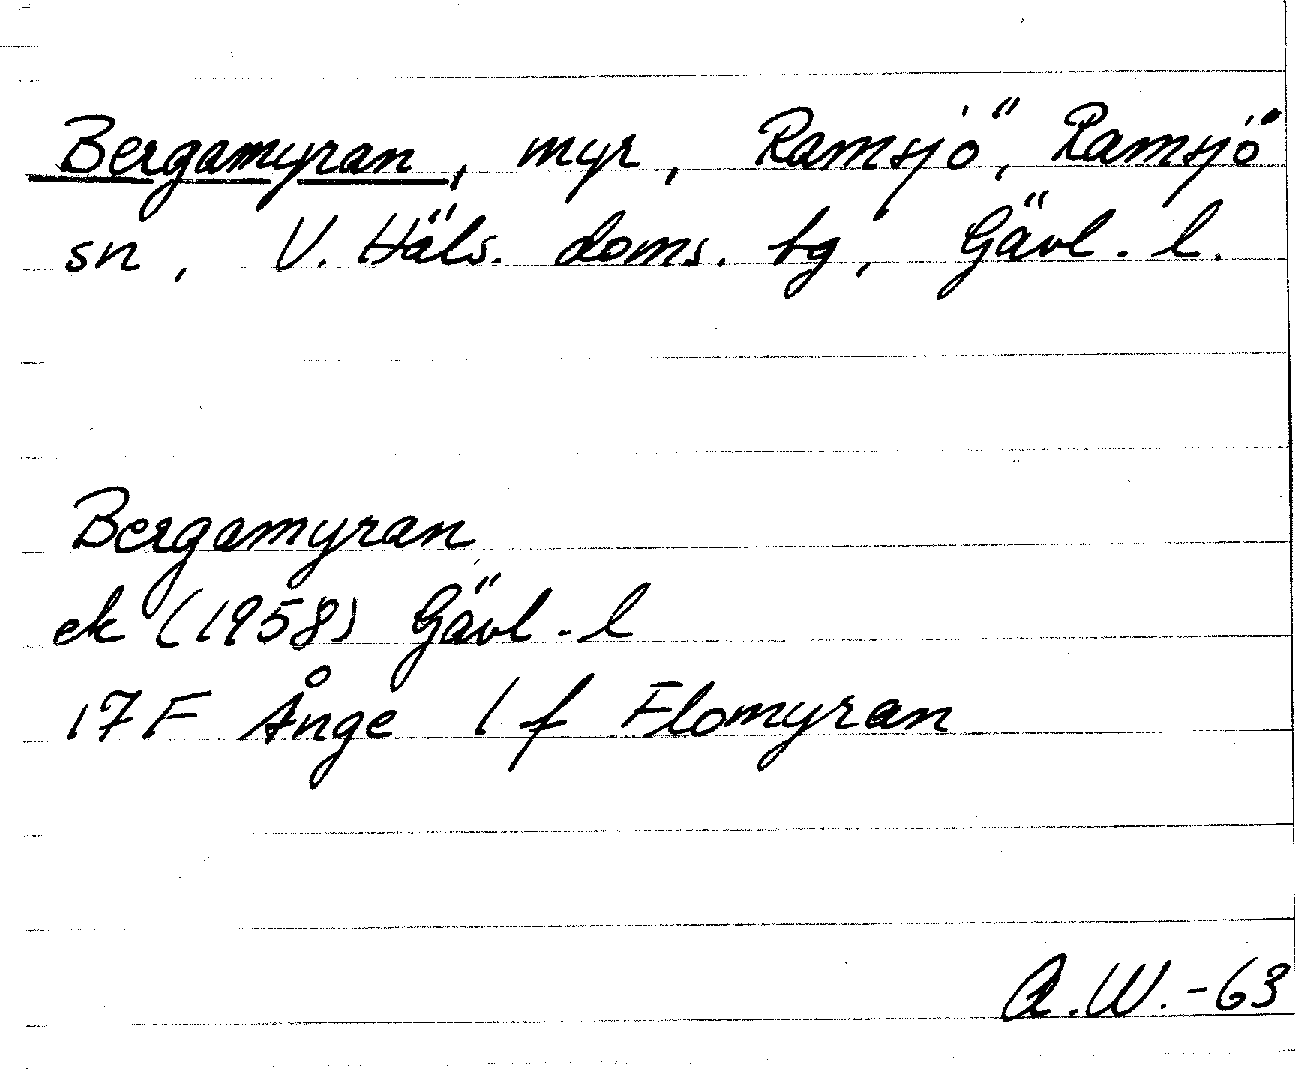 Bergamyran, myr, Ramsjö, Ramsjö
sn, V. Häls. doms. tg, Gävl. l.
Bergamyran
ek (1958) Gävl. l
17F Ånge 1 f Flomyran
A.W.-63